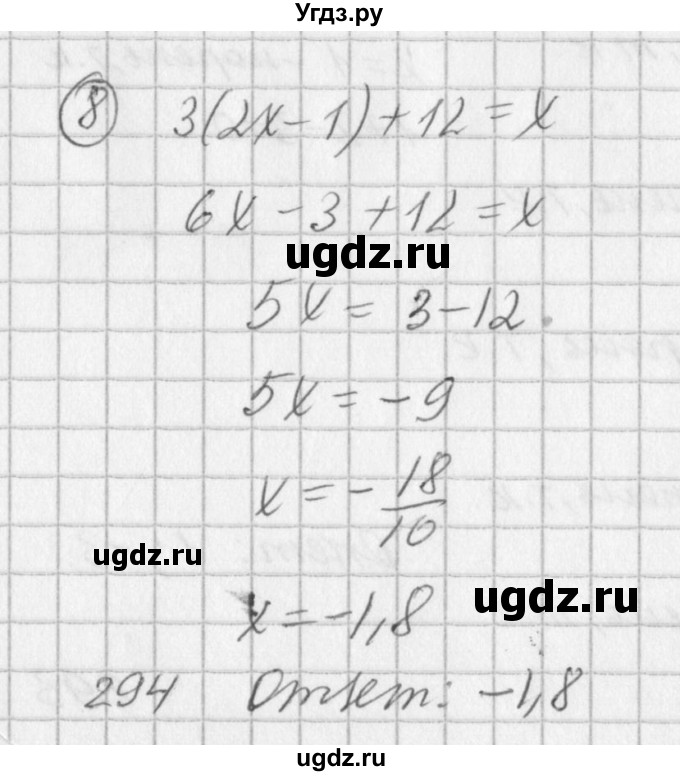 Угдз.ру
8 3(2x-1)+12=x
6x-3+12=x
ugdz.ru
5x=3-12.
5x=-9
x=-18/10
ugdz.ru
ugdz.ru
x=-1,8
294 Ответ: -1,8
ugdz.ru